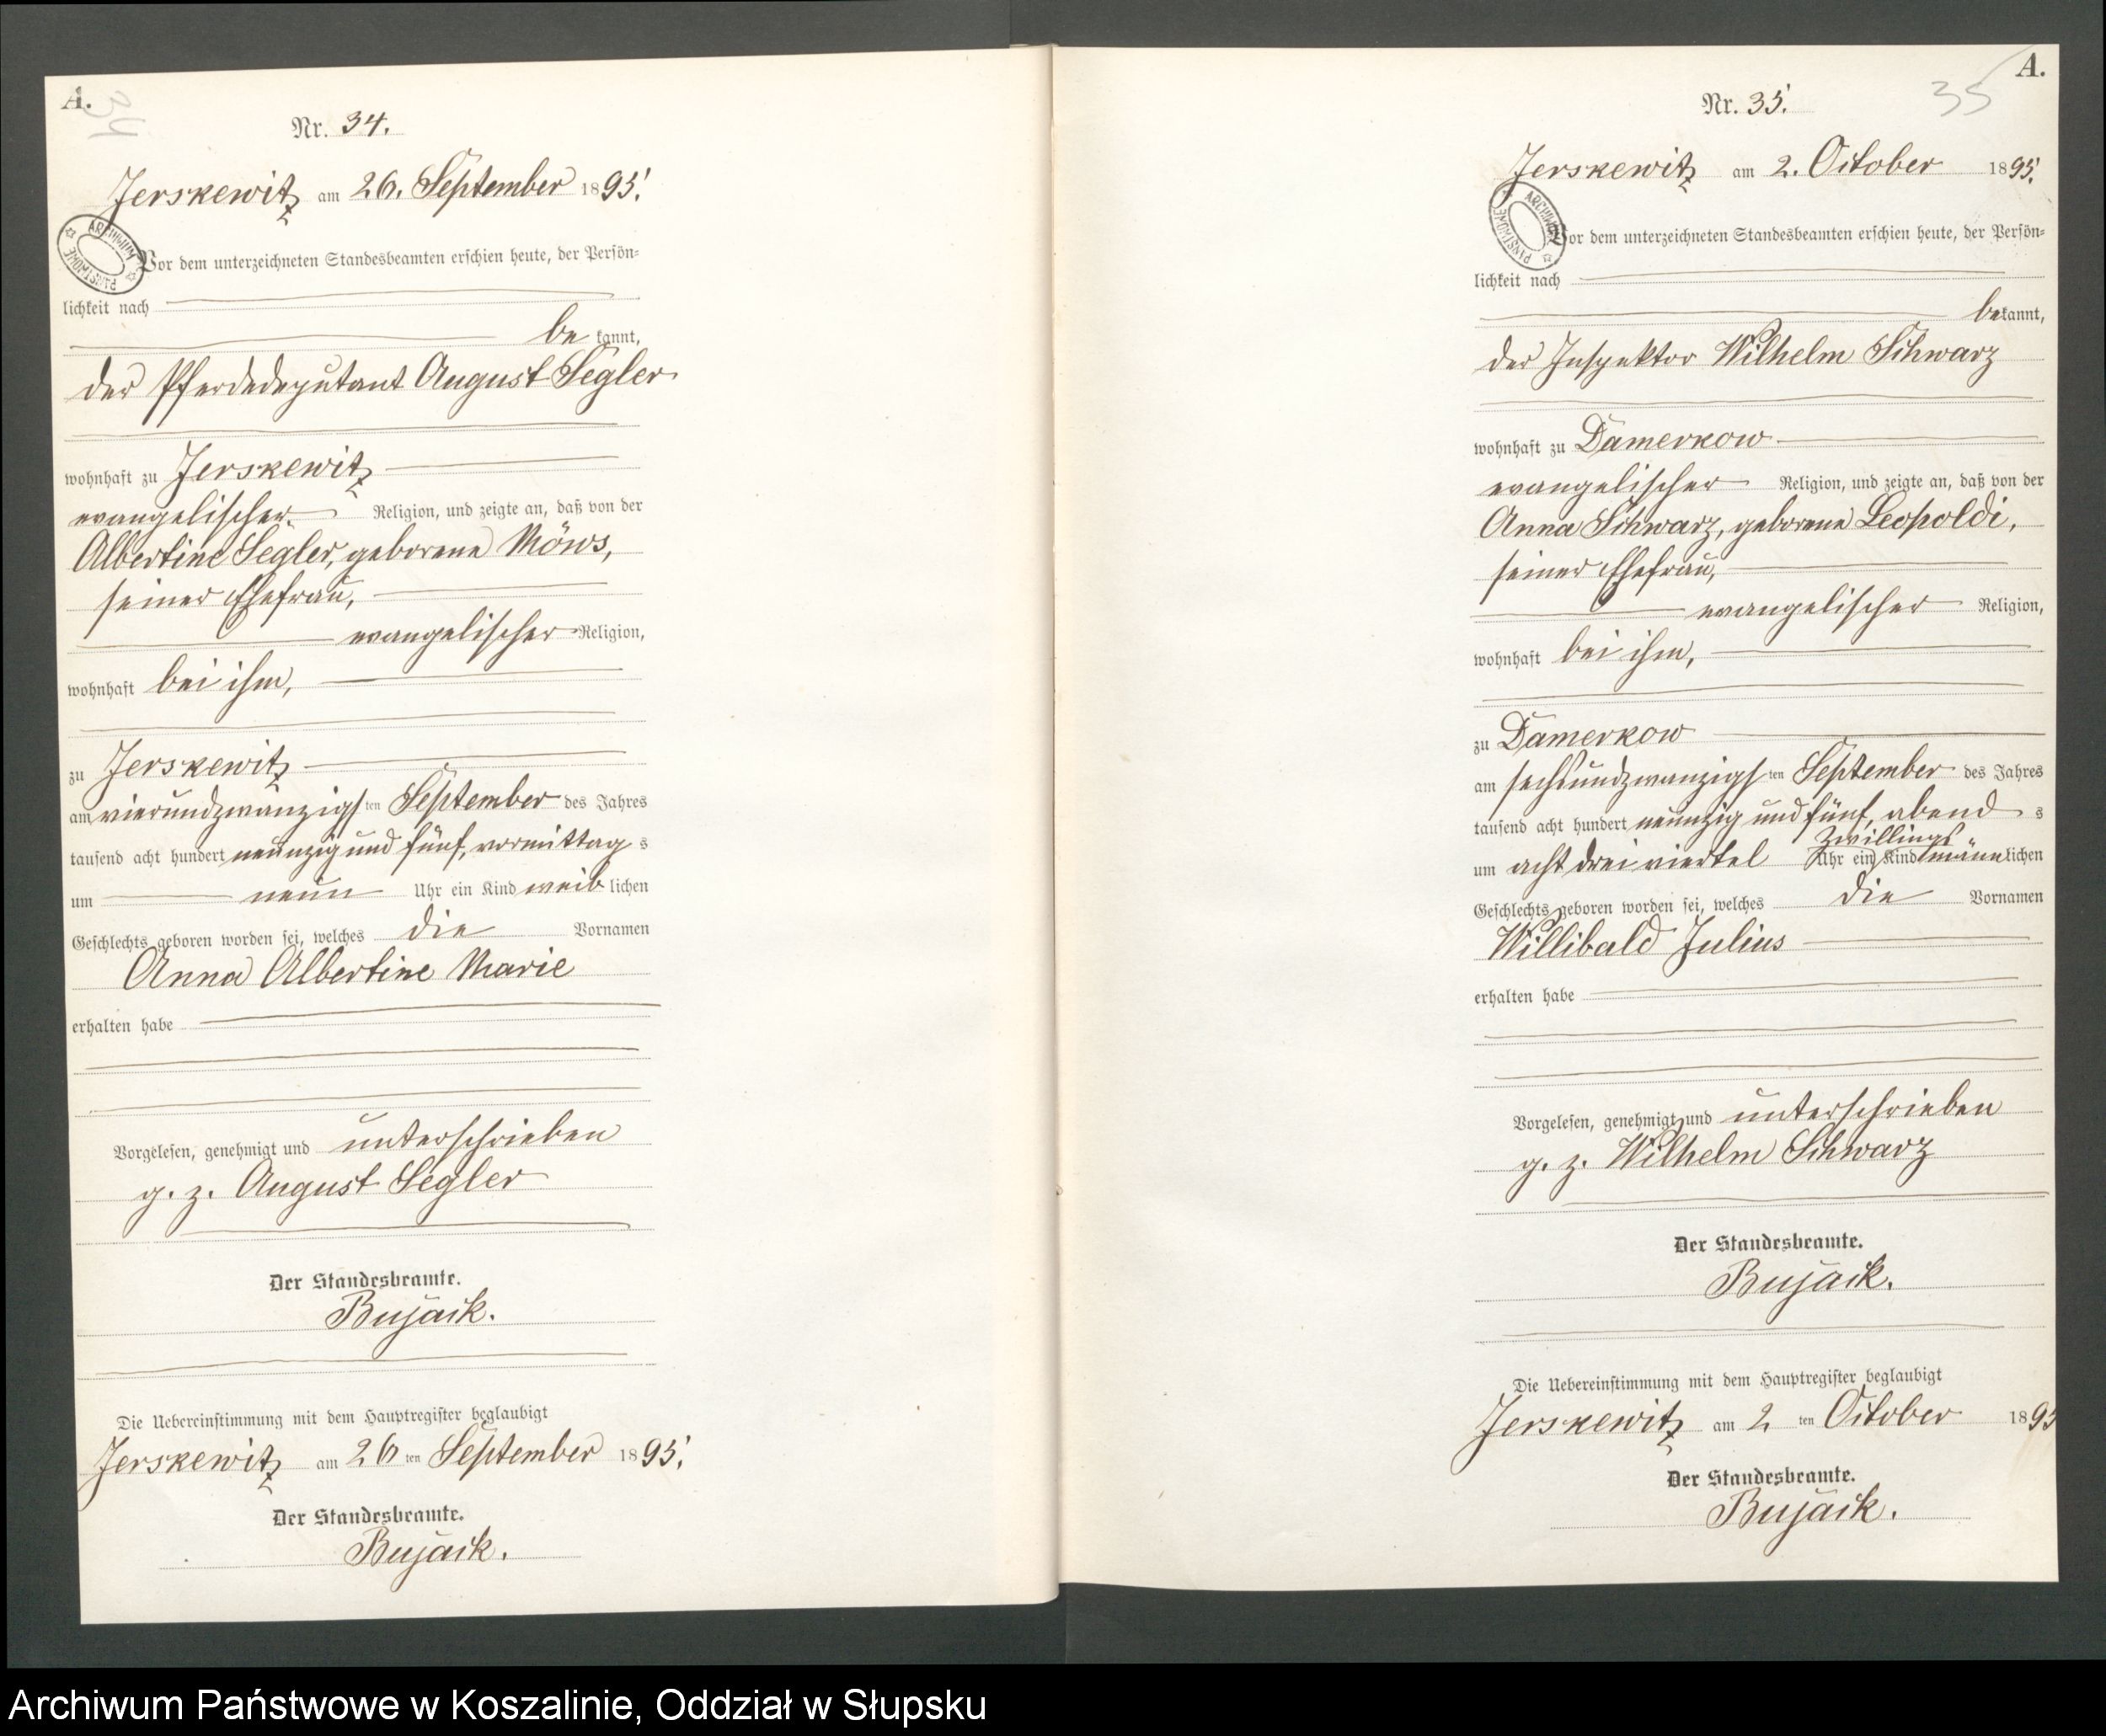 A.
34
Nr. 34.
Jerskewitz am 26. September 1895.
ARCHIWUM PAŃSTWOWE
Vor dem unterzeichneten Standesbeamten erschien heute, der Persön-
lichkeit nach
be kannt,
der Pferdedeputant August Segler
wohnhaft zu Jerskewitz
evangelischer Religion, und zeigte an, daß von der
Albertine Segler, geborene Möws,
seiner Ehefrau,
evangelischer Religion,
wohnhaft bei ihm,
zu Jerskewitz
am vierundzwanzigsten September des Jahres
tausend acht hundert neunzig und fünf, vormittags
um neun Uhr ein Kind weiblichen
Geschlechts geboren worden sei, welches die Vornamen
Anna Albertine Marie
erhalten habe
Vorgelesen, genehmigt und unterschrieben
g. z. August Segler
Der Standesbeamte.
Bujack.
Die Uebereinstimmung mit dem Hauptregister beglaubigt
Jerskewitz am 26 ten September 1895.
Der Standesbeamte.
Bujack.
A.
35
Nr. 35.
Jerskewitz am 2. October 1895.
ARCHIWUM PAŃSTWOWE
Vor dem unterzeichneten Standesbeamten erschien heute, der Persön-
lichkeit nach
bekannt,
der Inspektor Wilhelm Schwarz
wohnhaft zu Damerkow
evangelischer Religion, und zeigte an, daß von der
Anna Schwarz, geborene Leopoldi,
seiner Ehefrau,
evangelischer Religion,
wohnhaft bei ihm,
zu Damerkow
am sechsundzwanzigsten September des Jahres
tausend acht hundert neunzig und fünf, abends
Zwillings
um acht drei viertel Uhr ein Kind männlichen
Geschlechts geboren worden sei, welches die Vornamen
Willibald Julius
erhalten habe
Vorgelesen, genehmigt und unterschrieben
g. z. Wilhelm Schwarz
Der Standesbeamte.
Bujack.
Die Uebereinstimmung mit dem Hauptregister beglaubigt
Jerskewitz am 2 ten October 1895
Der Standesbeamte.
Bujack.
Archiwum Państwowe w Koszalinie, Oddział w Słupsku